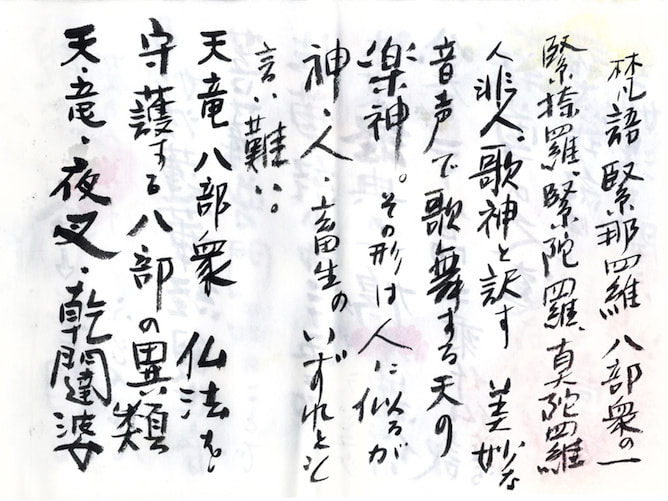 梵語 緊那羅 八部衆の一
緊捺羅、緊陀羅、真陀羅
人非人、歌神と訳す 美妙な
音声で歌舞する天の
楽神。その形は人に似るが
神・人・畜生のいずれとも
言い難い。
天竜八部衆 仏法を
守護する八部の異類
天・竜・夜叉・乾闥婆